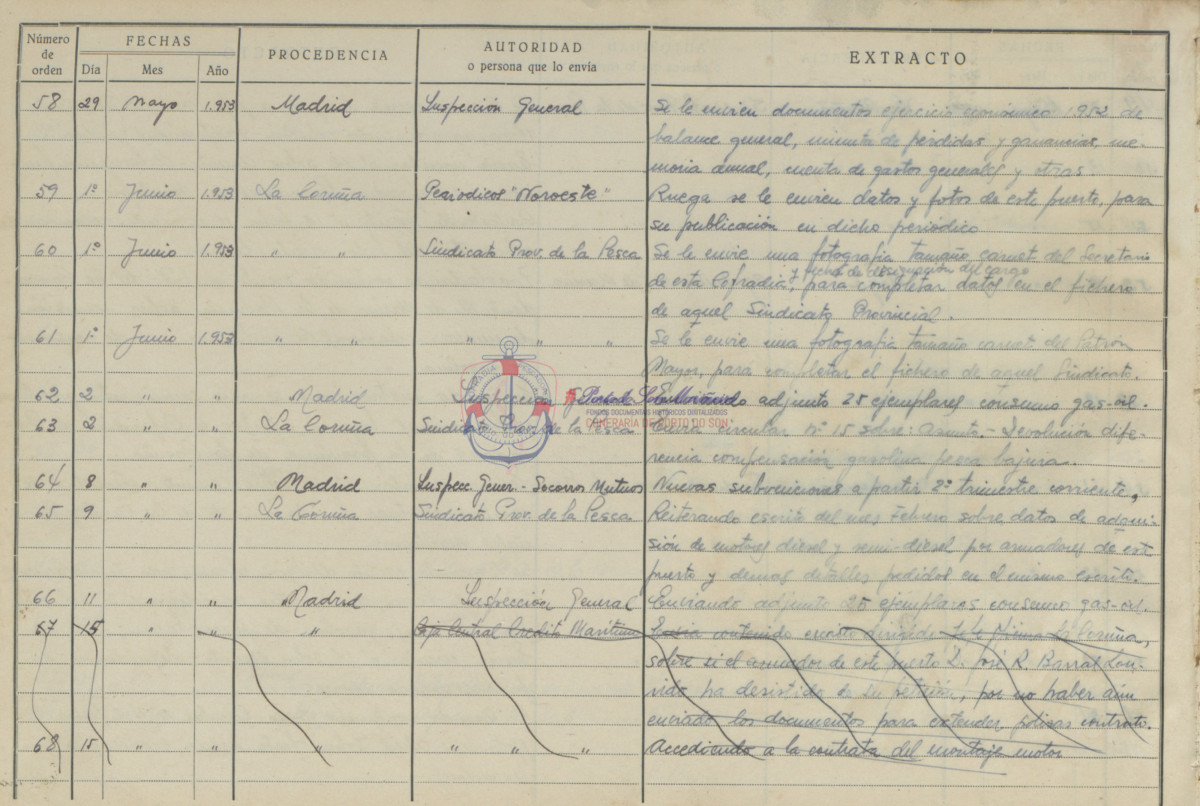 Número de orden FECHAS Día Mes Año PROCEDENCIA AUTORIDAD o persona que lo envía EXTRACTO
58 29 Mayo 1.953 Madrid Inspección General Se le envien documentos ejercicio económico 1.952 de
balance general, cuenta de pérdidas y ganancias, me-
moria anual, cuenta de gastos generales y otras.
59 1º Junio 1.953 La Coruña Periodicos "Noroeste" Ruega se le envien datos y fotos de este puerto, para
su publicación en dicho periódico
60 1º Junio 1.953 " " Sindicato Prov. de la Pesca Se le envie una fotografia tamaño carnet del Secretario
y fecha de designación del cargo
de esta Cofradia, para completar datos en el fichero
de aquel Sindicato Provincial.
61 1º Junio 1.953 " " " " " Se le envie una fotografia tamaño carnet del Patrón
Mayor, para completar el fichero de aquel Sindicato.
62 2 " " Madrid Inspección adjunto 25 ejemplares consumo gas-oil.
63 2 " " La Coruña Sindicato Prov. de la Pesca Envia circular nº 15 sobre: Asunto.- Devolución dife-
rencia compensación gasolina pesca bajura.
64 8 " " Madrid Inspecc. Gener.- Socorros Mutuos Nuevas subvenciones a partir 2º trimestre corriente,
65 9 " " La Coruña Sindicato Prov. de la Pesca Reiterando escrito del mes Febrero sobre datos de adqui-
sión de motores diesel y semi-diesel por armadores de este
puerto y demas detalles pedidos en el mismo escrito.
66 11 " " Madrid Inspección General Enviando adjunto 25 ejemplares consumo gas-oil.
67 15 " " " Caja Central Crédito Maritimo contenido escrito dirigido La Coruña,
sobre si el armador de este puerto D. José R. Barral Lou-
rido ha desistido de su petición, por no haber aún
enviado los documentos para extender polizas contrato.
68 15 " " " " " " Accediendo a la contrata del montaje motor
FONDOS DOCUMENTAIS HISTÓRICOS DIXITALIZADOS
CONFRARÍA DE PORTO DO SON